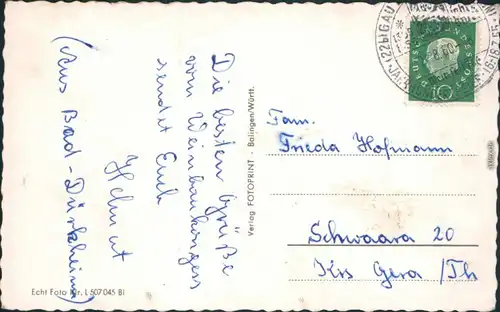 Die besten Grüße
vom Weinbaukongreß
sendet Euch
Helmut
(Aus Bad-Dürkheim)
Echt Foto Nr. L 507 045 Bl
Verlag FOTOPRINT - Balingen/Württ.
(22b) GAU
DEUTSCHE BUNDESPOST
10
Fam.
Frieda Hofmann
Schwaara 20
Krs Gera /Th